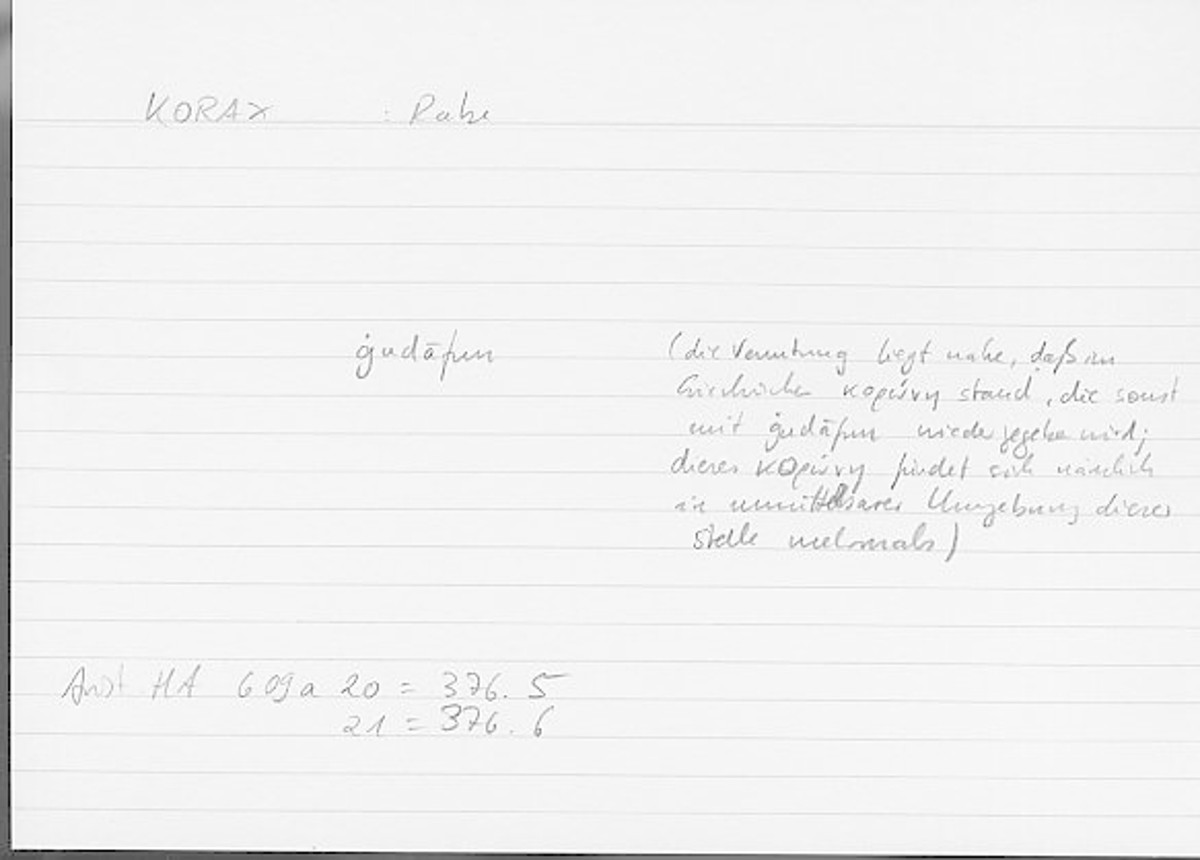 KORAX : Rabe
ġudāfun (die Vermutung liegt nahe, daß im
Griechischen κορώνη stand, die sonst
mit ġudāfun wiedergegeben wird;
dieses κορώνη findet sich nämlich
in unmittelbarer Umgebung dieser
Stelle mehrmals)
Arist HA 609a 20 = 376.5
21 = 376.6